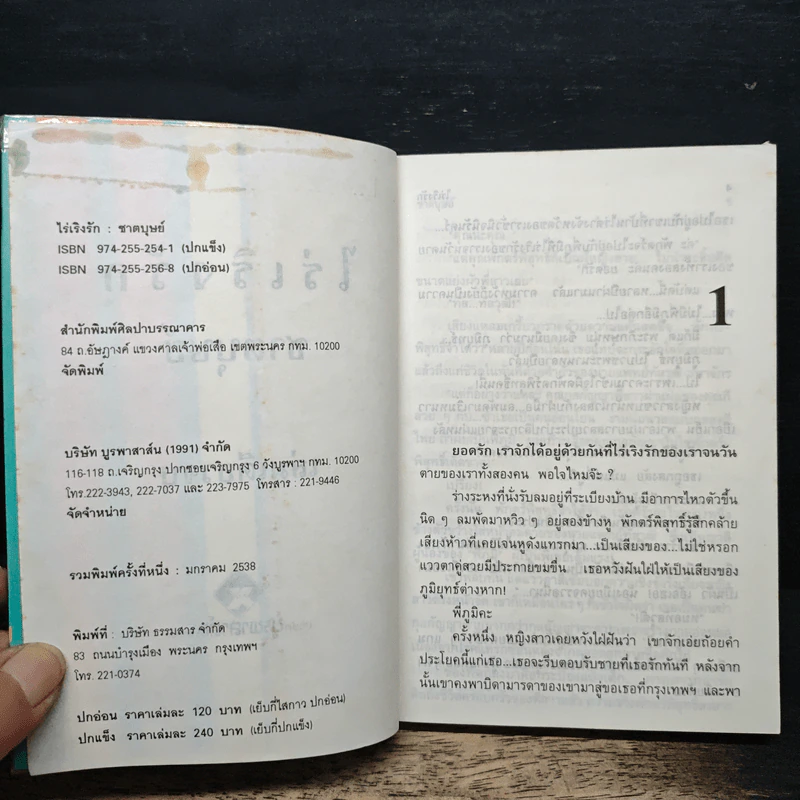 ไร่เริงรัก : ชาตบุษย์
ISBN 974-255-254-1 (ปกแข็ง)
ISBN 974-255-256-8 (ปกอ่อน)
สำนักพิมพ์ศิลปาบรรณาคาร
84 ถ.อัษฎางค์ แขวงศาลเจ้าพ่อเสือ เขตพระนคร กทม. 10200
จัดพิมพ์
บริษัท บูรพาสาส์น (1991) จำกัด
116-118 ถ.เจริญกรุง ปากซอยเจริญกรุง 6 วังบูรพาฯ กทม. 10200
โทร.222-3943, 222-7037 และ 223-7975 โทรสาร : 221-9446
จัดจำหน่าย
รวมพิมพ์ครั้งที่หนึ่ง : มกราคม 2538
พิมพ์ที่ : บริษัท ธรรมสาร จำกัด
83 ถนนบำรุงเมือง พระนคร กรุงเทพฯ
โทร. 221-0374
ปกอ่อน ราคาเล่มละ 120 บาท (เย็บกี่ไสกาว ปกอ่อน)
ปกแข็ง ราคาเล่มละ 240 บาท (เย็บกี่ปกแข็ง)
1
ยอดรัก เราจักได้อยู่ด้วยกันที่ไร่เริงรักของเราจนวัน
ตายของเราทั้งสองคน พอใจไหมจ๊ะ ?
ร่างระหงที่นั่งรับลมอยู่ที่ระเบียงบ้าน มีอาการไหวตัวขึ้น
นิด ๆ ลมพัดมาหวิว ๆ อยู่สองข้างหู พักตร์พิสุทธิ์รู้สึกคล้าย
เสียงห้าวที่เคยเจนหูดังแทรกมา...เป็นเสียงของ...ไม่ใช่หรอก
แววตาคู่สวยมีประกายขมขื่น เธอหวังฝันใฝ่ให้เป็นเสียงของ
ภูมิยุทธ์ต่างหาก!
พี่ภูมิคะ
ครั้งหนึ่ง หญิงสาวเคยหวังใฝ่ฝันว่า เขาจักเอ่ยถ้อยคำ
ประโยคนี้แก่เธอ...เธอจะรีบตอบรับชายที่เธอรักทันที หลังจาก
นั้นเขาคงพาบิดามารดาของเขามาสู่ขอเธอที่กรุงเทพฯ และพา